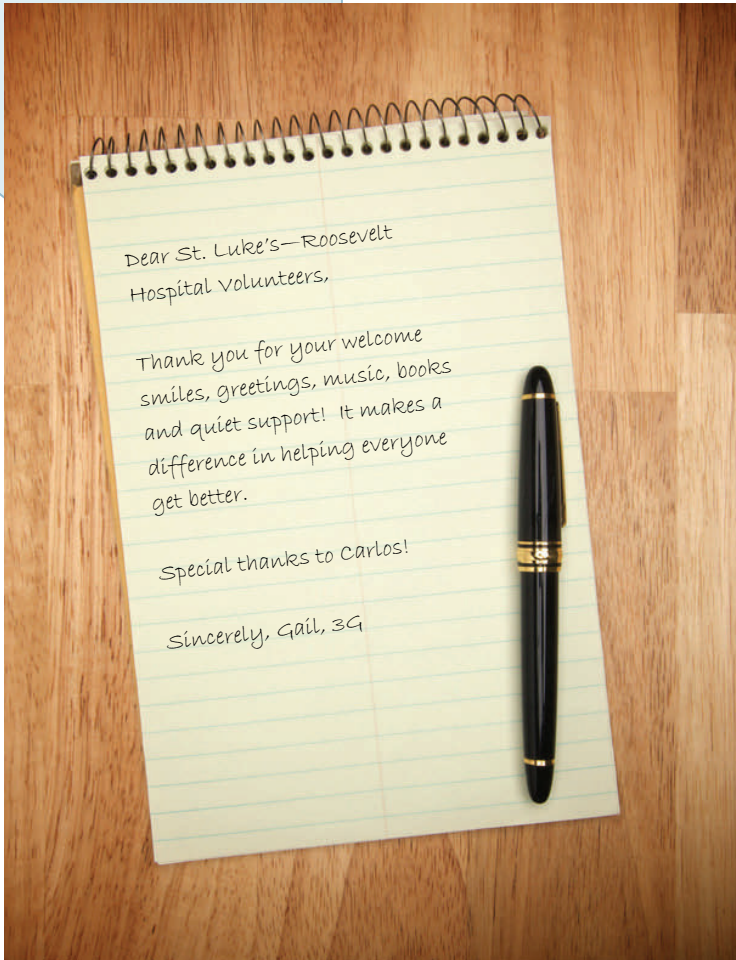 Dear St. Luke's—Roosevelt
Hospital Volunteers,
Thank you for your welcome
smiles, greetings, music, books
and quiet support! It makes a
difference in helping everyone
get better.
Special thanks to Carlos!
Sincerely, Gail, 3G